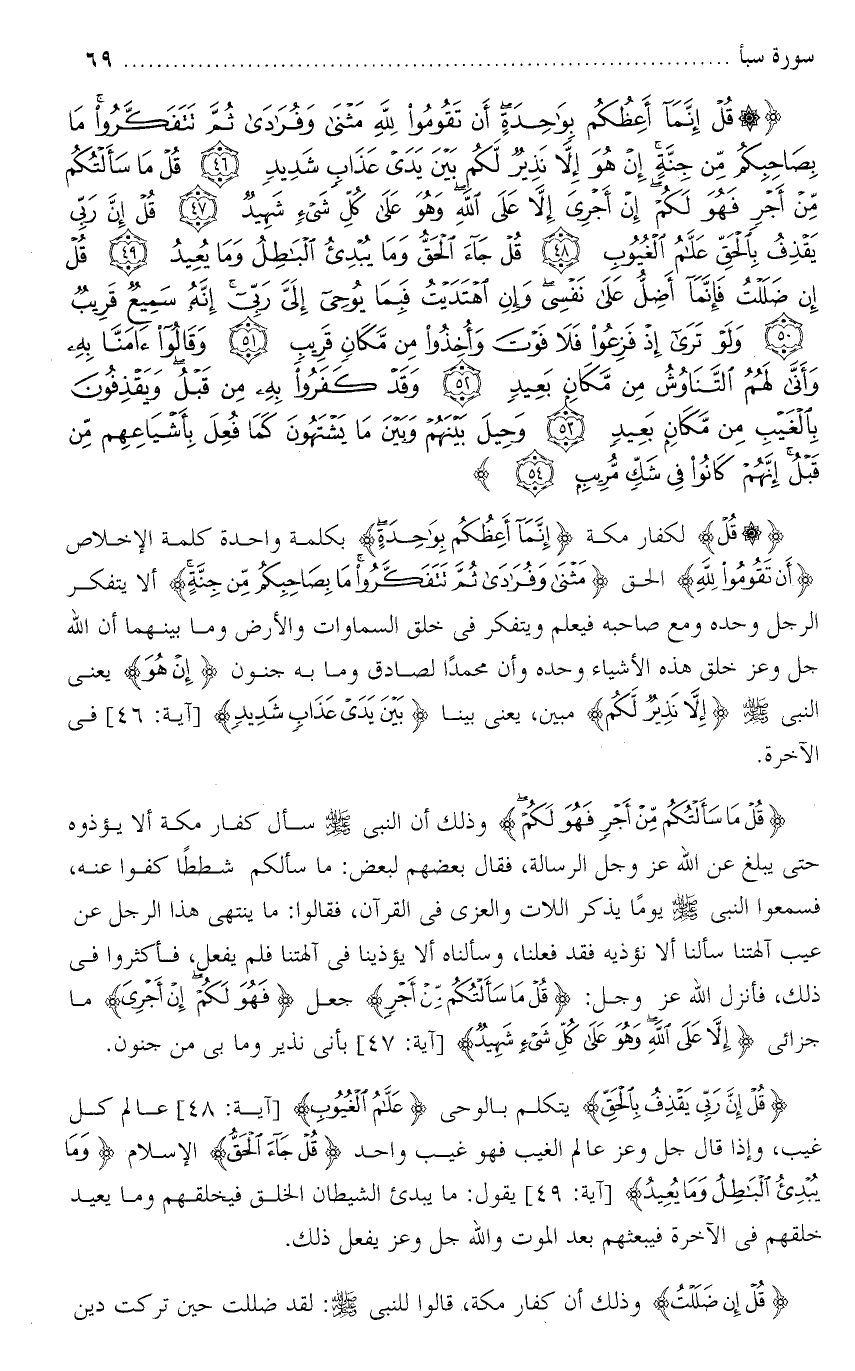 سورة سبأ ........................................................................ ٦٩
﴿۞ قُلْ إِنَّمَآ أَعِظُكُم بِوَٰحِدَةٍۖ أَن تَقُومُوا۟ لِلَّهِ مَثْنَىٰ وَفُرَٰدَىٰ ثُمَّ تَتَفَكَّرُوا۟ۚ مَا
بِصَاحِبِكُم مِّن جِنَّةٍۚ إِنْ هُوَ إِلَّا نَذِيرٌ لَّكُم بَيْنَ يَدَىْ عَذَابٍ شَدِيدٍ ﴿٤٦﴾ قُلْ مَا سَأَلْتُكُم
مِّنْ أَجْرٍ فَهُوَ لَكُمْۖ إِنْ أَجْرِىَ إِلَّا عَلَى ٱللَّهِۖ وَهُوَ عَلَىٰ كُلِّ شَىْءٍ شَهِيدٌ ﴿٤٧﴾ قُلْ إِنَّ رَبِّى
يَقْذِفُ بِٱلْحَقِّ عَلَّٰمُ ٱلْغُيُوبِ ﴿٤٨﴾ قُلْ جَآءَ ٱلْحَقُّ وَمَا يُبْدِئُ ٱلْبَٰطِلُ وَمَا يُعِيدُ ﴿٤٩﴾ قُلْ
إِن ضَلَلْتُ فَإِنَّمَآ أَضِلُّ عَلَىٰ نَفْسِىۖ وَإِنِ ٱهْتَدَيْتُ فَبِمَا يُوحِىٓ إِلَىَّ رَبِّىٓۚ إِنَّهُۥ سَمِيعٌ قَرِيبٌ
﴿٥٠﴾ وَلَوْ تَرَىٰٓ إِذْ فَزِعُوا۟ فَلَا فَوْتَ وَأُخِذُوا۟ مِن مَّكَانٍ قَرِيبٍ ﴿٥١﴾ وَقَالُوٓا۟ ءَامَنَّا بِهِۦ
وَأَنَّىٰ لَهُمُ ٱلتَّنَاوُشُ مِن مَّكَانٍۭ بَعِيدٍ ﴿٥٢﴾ وَقَدْ كَفَرُوا۟ بِهِۦ مِن قَبْلُۖ وَيَقْذِفُونَ
بِٱلْغَيْبِ مِن مَّكَانٍۭ بَعِيدٍ ﴿٥٣﴾ وَحِيلَ بَيْنَهُمْ وَبَيْنَ مَا يَشْتَهُونَ كَمَا فُعِلَ بِأَشْيَاعِهِم مِّن
قَبْلُۚ إِنَّهُمْ كَانُوا۟ فِى شَكٍّ مُّرِيبٍۭ ﴿٥٤﴾ ﴾
﴿۞ قُلْ﴾ لكفار مكة ﴿إِنَّمَآ أَعِظُكُم بِوَٰحِدَةٍۖ﴾ بكلمة واحدة كلمة الإخلاص
﴿أَن تَقُومُوا۟ لِلَّهِ﴾ الحق ﴿مَثْنَىٰ وَفُرَٰدَىٰ ثُمَّ تَتَفَكَّرُوا۟ۚ مَا بِصَاحِبِكُم مِّن جِنَّةٍۚ﴾ ألا يتفكر
الرجل وحده ومع صاحبه فيعلم ويتفكر فى خلق السماوات والأرض وما بينهما أن الله
جل وعز خلق هذه الأشياء وحده وأن محمدًا لصادق وما به جنون ﴿إِنْ هُوَ﴾ يعنى
النبى ﷺ ﴿إِلَّا نَذِيرٌ لَّكُم﴾ مبين، يعنى بينا ﴿بَيْنَ يَدَىْ عَذَابٍ شَدِيدٍ﴾ [آية: ٤٦] فى
الآخرة.
﴿قُلْ مَا سَأَلْتُكُم مِّنْ أَجْرٍ فَهُوَ لَكُمْۖ﴾ وذلك أن النبى ﷺ سأل كفار مكة ألا يؤذوه
حتى يبلغ عن الله عز وجل الرسالة، فقال بعضهم لبعض: ما سألكم شططًا كفوا عنه،
فسمعوا النبى ﷺ يومًا يذكر اللات والعزى فى القرآن، فقالوا: ما ينتهى هذا الرجل عن
عيب آلهتنا سألنا ألا نؤذيه فقد فعلنا، وسألناه ألا يؤذينا فى آلهتنا فلم يفعل، فأكثروا فى
ذلك، فأنزل الله عز وجل: ﴿قُلْ مَا سَأَلْتُكُم مِّنْ أَجْرٍ﴾ جعل ﴿فَهُوَ لَكُمْۖ إِنْ أَجْرِىَ﴾ ما
جزائى ﴿إِلَّا عَلَى ٱللَّهِۖ وَهُوَ عَلَىٰ كُلِّ شَىْءٍ شَهِيدٌ﴾ [آية: ٤٧] بأنى نذير وما بى من جنون.
﴿قُلْ إِنَّ رَبِّى يَقْذِفُ بِٱلْحَقِّ﴾ يتكلم بالوحى ﴿عَلَّٰمُ ٱلْغُيُوبِ﴾ [آية: ٤٨] عالم كل
غيب، وإذا قال جل وعز عالم الغيب فهو غيب واحد ﴿قُلْ جَآءَ ٱلْحَقُّ﴾ الإسلام ﴿وَمَا
يُبْدِئُ ٱلْبَٰطِلُ وَمَا يُعِيدُ﴾ [آية: ٤٩] يقول: ما يبدئ الشيطان الخلق فيخلقهم وما يعيد
خلقهم فى الآخرة فيبعثهم بعد الموت والله جل وعز يفعل ذلك.
﴿قُلْ إِن ضَلَلْتُ﴾ وذلك أن كفار مكة، قالوا للنبى ﷺ: لقد ضللت حين تركت دين